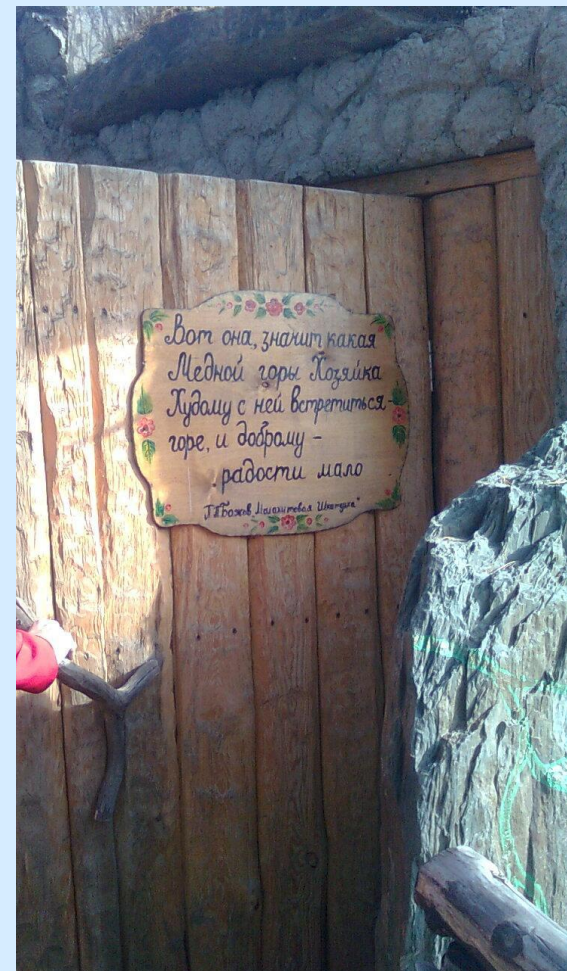 Вот она, значит какая
Медной горы Хозяйка
Худому с ней встретиться -
горе, и доброму -
радости мало
П.П.Бажов "Малахитовая Шкатулка"